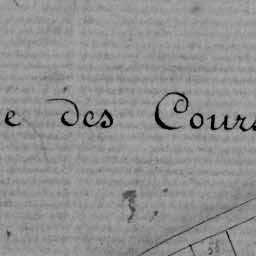 e des Cours